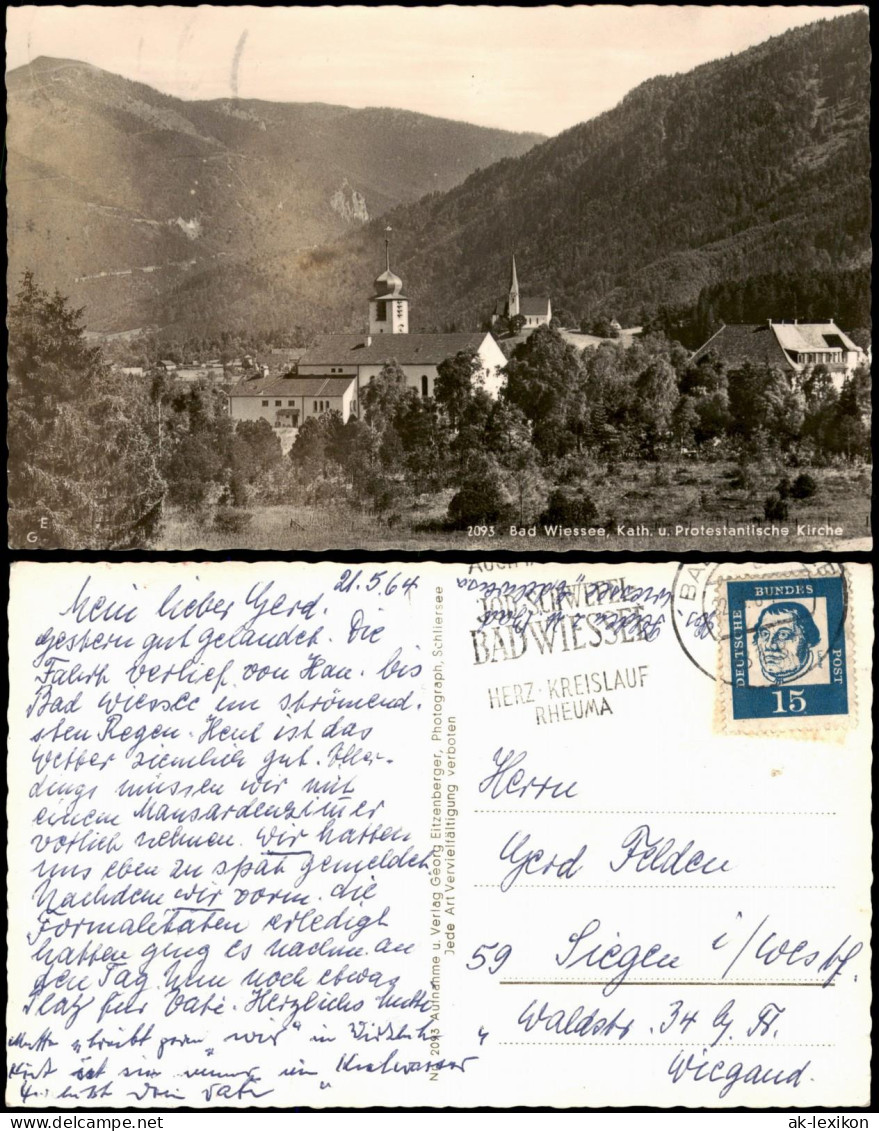 E
G.
2093 Bad Wiessee, Kath. u. Protestantische Kirche
21.5.64
Mein lieber Gerd.
Gestern gut gelandet. Die
Fahrt verlief von Han. bis
Bad Wiessee im strömend.
sten Regen. Heut ist das
Wetter ziemlich gut. Aller-
dings müssen wir mit
einem Mansardenzimmer
vorlieb nehmen. Wir hatten
uns eben zu spät gemeldet.
Nachdem wir vorm. die
Formalitäten erledigt
hatten ging es nachm. an
den Tag. Nun noch etwas
Platz für Vati. Herzlichs Mutti
Mutti schreibt gern "wir" in Wirklich-
keit ist sie immer im
Es grüßt Dein Vati
No. 2093 Aufnahme u. Verlag Georg Eitzenberger, Photograph, Schliersee
Jede Art Vervielfältigung verboten
AUCH
JOD-SCHWEFEL
BAD WIESSEE
HERZ-KREISLAUF
RHEUMA
DEUTSCHE BUNDES POST
15
Herrn
Gerd Felden
59 Siegen i/Westf.
Waldstr. 34 b. Fr.
Wiegand.
ak-lexikon.com
ak-lexikon